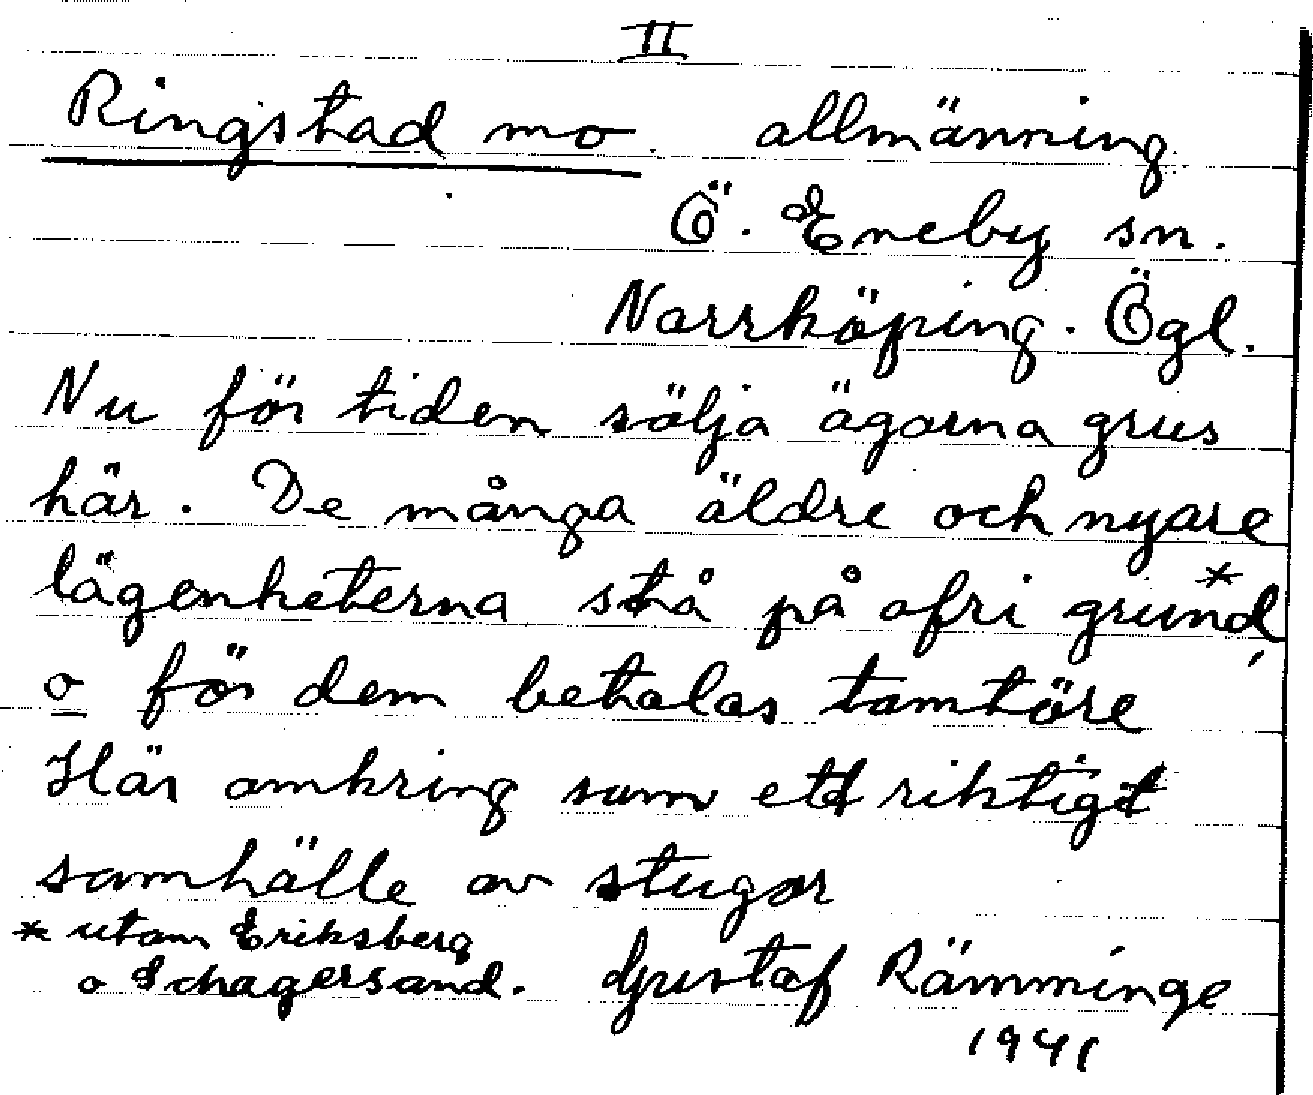 II
Ringstad mo allmänning
Ö. Eneby sn.
Norrköping. Ögl.
Nu för tiden sälja ägarna grus
här. De många äldre och nyare
lägenheterna stå på ofri grund*,
o för dem betalas tomtöre
Här omkring som ett riktigt
samhälle av stugor
* utom Eriksberg
o Schagersand. Gustaf Rämminge
1941